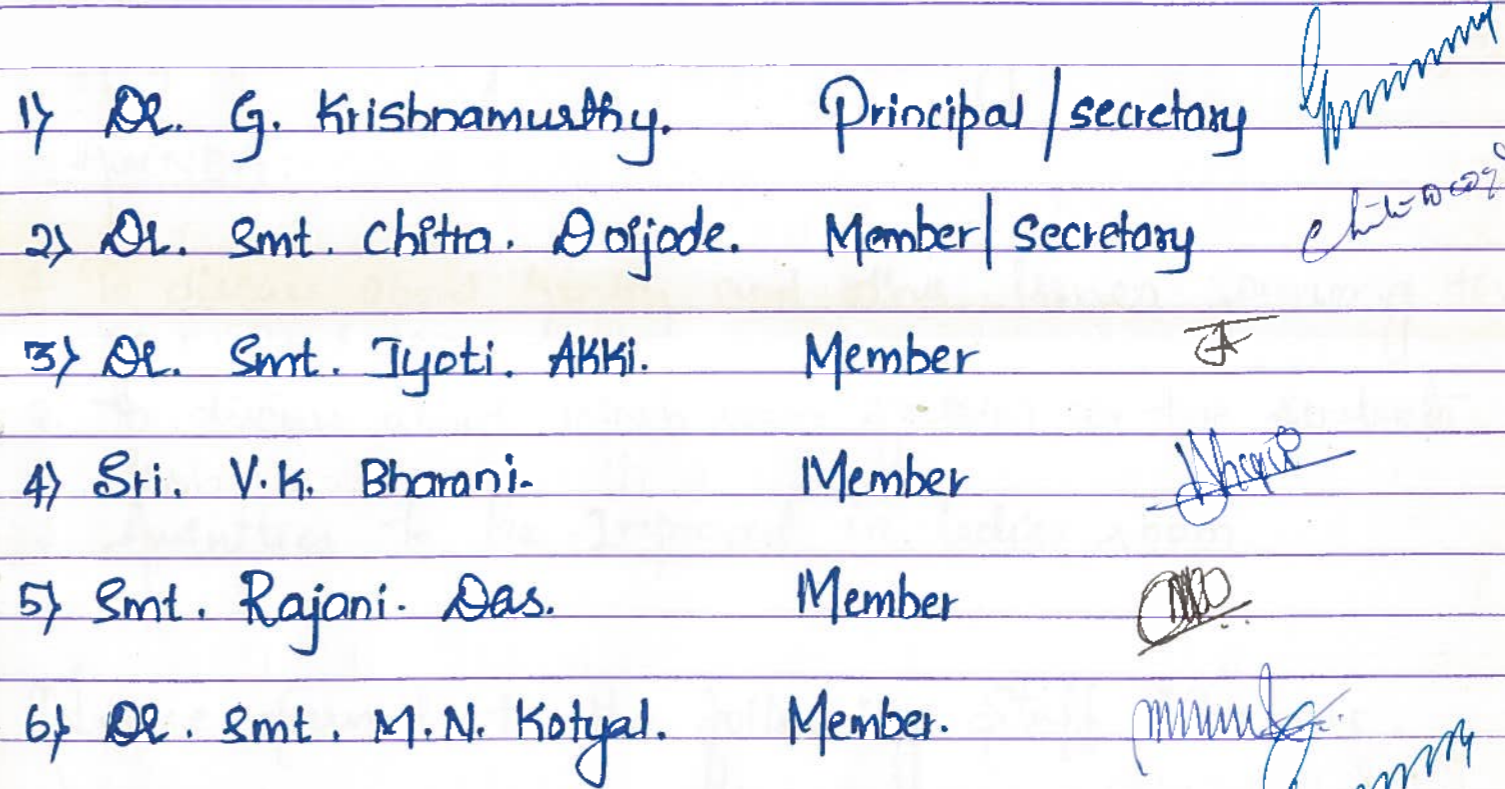 1) Dr. G. Krishnamurthy. Principal / secretary
2) Dr. Smt. Chitra. Doijode. Member / Secretary
3) Dr. Smt. Jyoti. AKKi. Member
4) Sri. V.K. Bharani. Member
5) Smt. Rajani. Das. Member
6) Dr. Smt. M.N. Kotyal. Member.